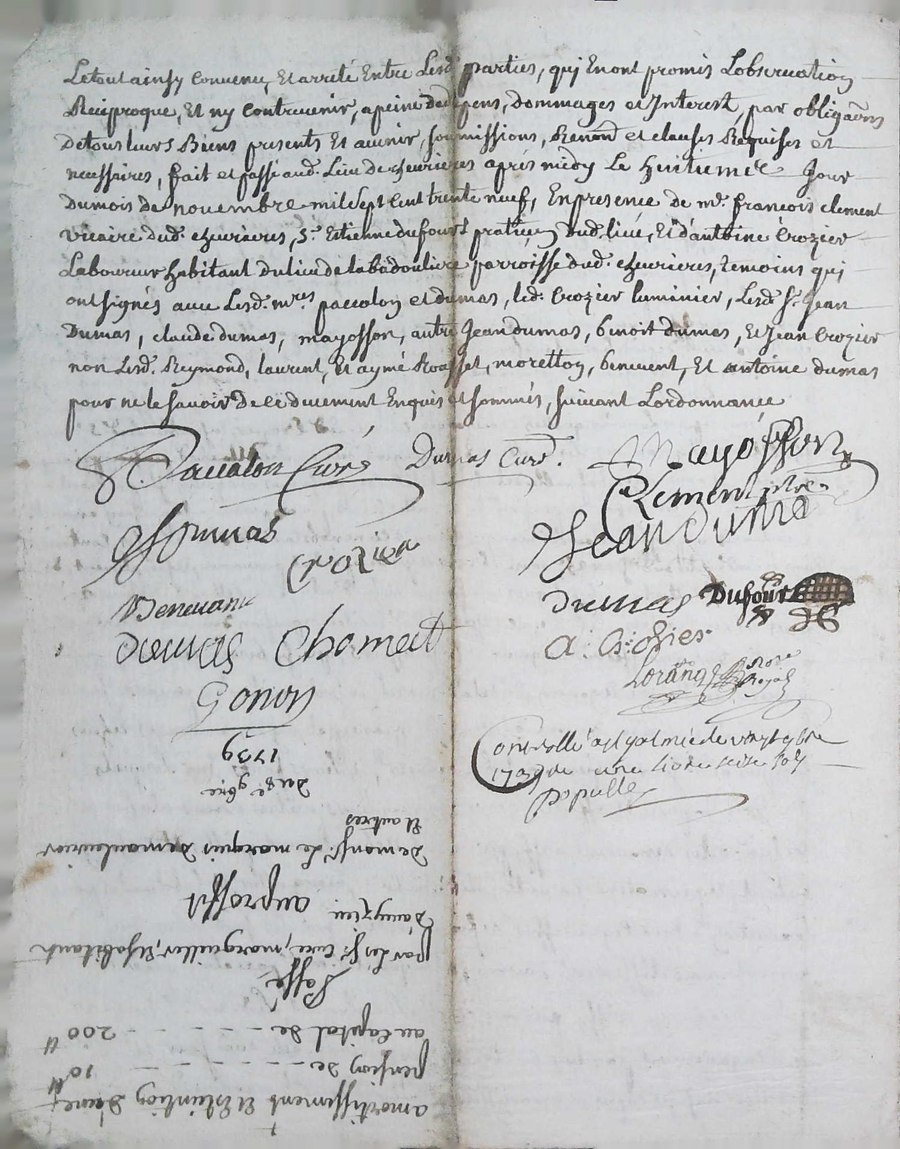 Letout ainsy convenu, Et arreté Entre Lesd. parties, qui Enont promis Lobservation
Réciproque, Et ny contrevenir, apeine dedépens, dommages et Interest, par obligaōns
detous leurs Biens presents Et avenir, soumissions, Renonōn et clauses Requises et
necessaires, fait et passé aud. Lieu de chevrieres aprés midy Le huitieme Jour
dumois de novembre mil sept cent trente neuf, En presence de mre. francois clement
vicaire dud. chevrieres, Sr. Estienne dufour praticien dud. lieu, Et d'antoine Crozier
Laboureur habitant du lieu de labadouliere parroisse dud. chevrieres, temoins qui
ont signés avec Lesd. mres. paccalon et dumas, led. Crozier luminier, Lesd. Sr. Jean
Dumas, claude dumas, mayosson, autre Jean dumas, benoit dumas, Et Jean Crozier
non Lesd. Reymond, laurent, Et aymé, moretton, benevent, Et antoine dumas
pour ne le savoir de ce duement Enquis Et sommés, suivant Lordonnance
Paccalon Curé Dumas Curé. Mayósson
Clement ptre.
JDumas Jean Dumas
Crozier
Benevant Dumas Dufour
dumas Chomect
Gonon
Notre
Royal
Controllé a St galmier le vingt 9bre
1739
du 8e. 9bre
1739
De monsr. Le marquis
Et autres
Dauyzieu auproffit
par Les Sr. curé, marguillier, Et habitants
Passé
au capital de - - - - - 200 ℔
pension de - - - - - - 10 ℔
amortissement Et Extinction d'une